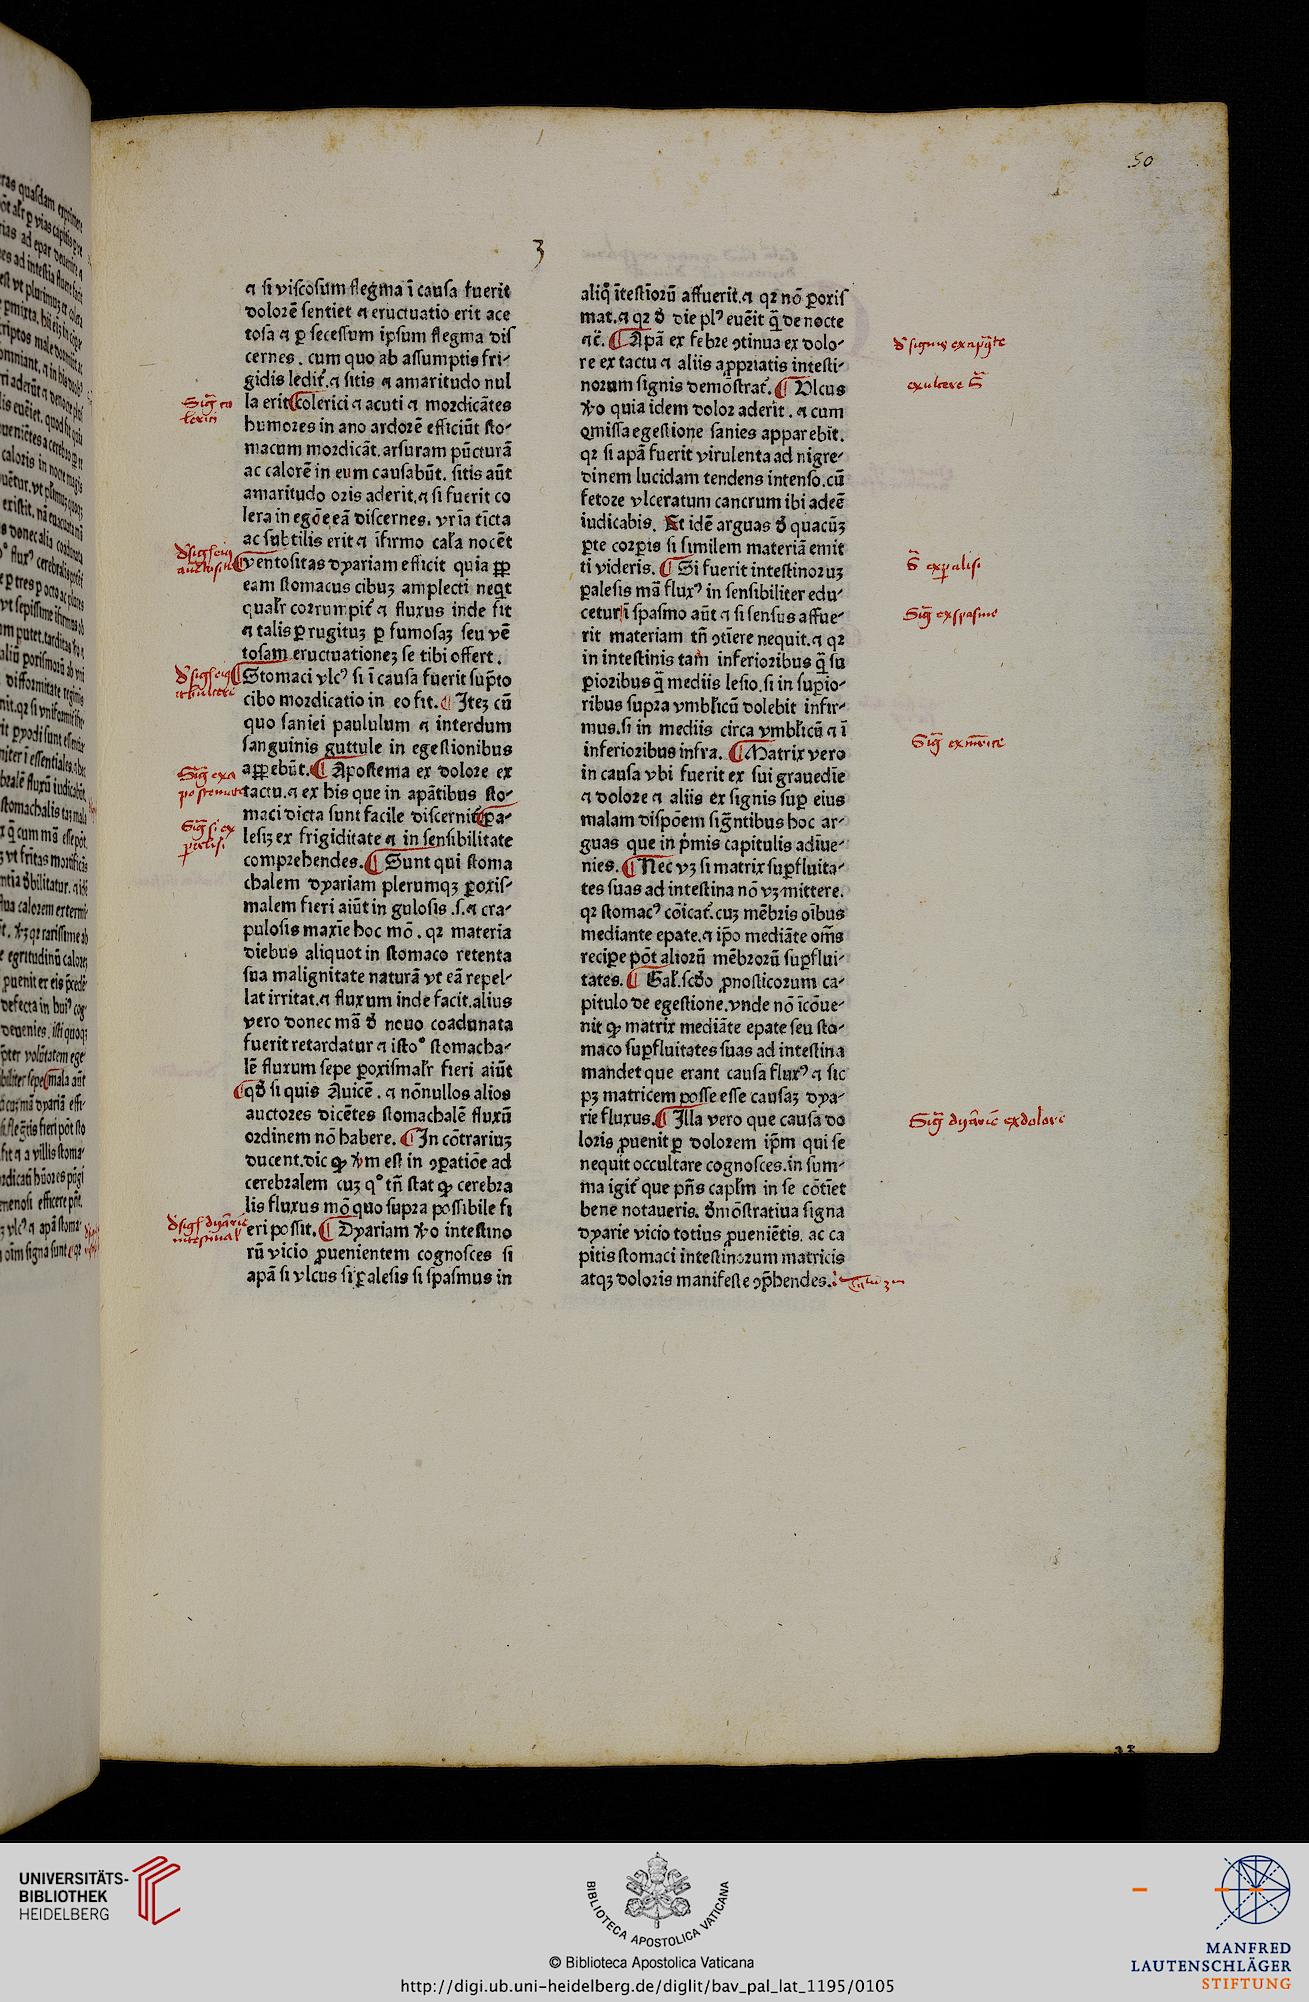 50
3
⁊ si viscosum flegma ī causa fuerit
dolorē sentiet ⁊ eructuatio erit ace
tosa ⁊ ꝑ secessum ipsum flegma dis
cernes . cum quo ab assumptis fri-
gidis ledit᷑.⁊ sitis ⁊ amaritudo nul
la erit ¶colerici ⁊ acuti ⁊ mordicātes
humores in ano ardorē efficiūt sto-
macum mordicāt. arsuram pūcturā
ac calorē in eum causabūt. sitis aūt
amaritudo oris aderit.⁊ si fuerit co
lera in egōe eā discernes. vrīa tīcta
ac subtilis erit ⁊ īfirmo cał'a nocēt
¶ventositas dyariam efficit quia ꝓp
eam stomacus cibuȝ amplecti neqt
qual'r corrumpit᷑ ⁊ fluxus inde fit
⁊ talis ꝑ rugituȝ ꝑ fumosaȝ seu vē
tosam eructuationeȝ se tibi offert .
¶Stomaci vlcꝰ si ī causa fuerit sup̄to
cibo mordicatio in eo fit. ¶ Iteȝ cū
quo saniei paululum ⁊ interdum
sanguinis guttule in egestionibus
aꝑꝑebūt. ¶ Apostema ex dolore ex
tactu.⁊ ex his que in apātibus sto-
maci dicta sunt facile discernit᷑ ¶pa-
lesiȝ ex frigiditate ⁊ in sensibilitate
comprehendes. ¶ Sunt qui stoma
chalem dyariam plerumqȝ ꝑoxis-
malem fieri aiūt in gulosis .s.⁊ cra-
pulosis maxīe hoc mō . qꝛ materia
diebus aliquot in stomaco retenta
sua malignitate naturā vt eā repel-
lat irritat.⁊ fluxum inde facit.alius
vero donec mā đ nouo coadunata
fuerit retardatur ⁊ istoº stomacha-
lē fluxum sepe ꝑoxismal'r fieri aiūt
¶qđ si quis Auicē . ⁊ nōnullos alios
auctores dicētes stomachalē fluxū
ordinem nō habere. ¶ In cōtrariuȝ
ducent.dic ꝙ v̓m est in ꝯꝑatiōe ad
cerebralem cuȝ qº tn̄ stat ꝙ cerebra
lis fluxus mō quo supra possibile fi
eri possit. ¶ Dyariam v̓o intestino
rū vicio ꝓuenientem cognosces si
apā si vlcus si ꝑalesis si spasmus in
aliqđ ītestīorū affuerit.⁊ qꝛ nō ꝑoxis
mat.⁊ qꝛ đ die plꝰ euēit q̄ de nocte
⁊c̄. ¶ Apā ex febre ꝯtinua ex dolo-
re ex tactu ⁊ aliis aꝓpriatis intesti-
norum signis demōstrat᷑. ¶ Vlcus
v̓o quia idem dolor aderit . ⁊ cum
omissa egestione sanies apparebit.
qꝛ si apā fuerit virulenta ad nigre-
dinem lucidam tendens intenso.cū
fetore vlceratum cancrum ibi adeē
iudicabis. Et idē arguas đ quacūȝ
ꝑte corꝑis si similem materiā emit
ti videris. ¶ Si fuerit intestinoruȝ
ꝑalesis mā fluxꝰ in sensibiliter edu-
cetur ī spasmo aūt ⁊ si sensus affue-
rit materiam tn̄ ꝯtīere nequit.⁊ qꝛ
in intestinis tam inferioribus q̄ su
ꝑioribus q̄ mediis lesio.si in suꝑio-
ribus supra vmblīcū dolebit infir-
mus.si in mediis circa vmblīcū ⁊ ī
inferioribus infra. ¶ Matrix vero
in causa vbi fuerit ex sui grauedīe
⁊ dolore ⁊ aliis ex signis suꝑ eius
malam dispōem sig̅ntibus hoc ar-
guas que in p̓mis capitulis adīue-
nies. ¶ Nec vȝ si matrix suꝑfluita-
tes suas ad intestina nō vȝ mittere.
qꝛ stomacꝰ cōicat᷑.cuȝ mēbris oībus
mediante epate.⁊ ip̄o mediāte om̄s
reciꝑe pōt aliorū mēbrorū suꝑflui-
tates. ¶ Gal'.scđo ꝓnosticorum ca-
pitulo de egestione.vnde nō īcōue-
nit ꝙ matrix mediāte epate seu sto-
maco suꝑfluitates suas ad intestina
mandet que erant causa fluxꝰ ⁊ sic
pȝ matricem posse esse causaȝ dya-
rie fluxus. ¶ Illa vero que causa do
loris ꝓuenit ꝑ dolorem ip̄m qui se
nequit occultare cognosces.in sum-
ma igit᷑ que pn̄s capl'm in se cōtīet
bene notaueris. đmōstratiua signa
dyarie vicio totius ꝓueniētis. ac ca
pitis stomaci intestinorum matricis
atqȝ doloris manifeste ꝯp̄hendes.
Sig̅ co
lericis
Sig̅ si ex
palisi
Sig̅ ex spasmo
Sig̅ ex mr̄ice
Sig̅ dyārie ex dolore
UNIVERSITÄTS-
BIBLIOTHEK
HEIDELBERG
BIBLIOTECA APOSTOLICA VATICANA
© Biblioteca Apostolica Vaticana
http://digi.ub.uni-heidelberg.de/diglit/bav_pal_lat_1195/0105
MANFRED
LAUTENSCHLÄGER
STIFTUNG